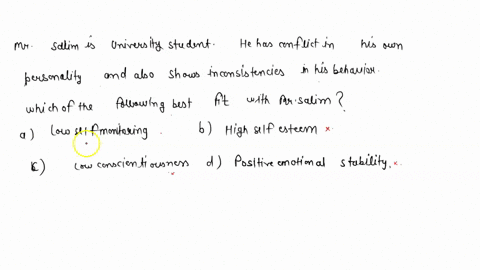 Mr. Salim is University student. He has conflict in his own
personality and also shows inconsistencies in his behavior.
which of the following best fit with Mr. Salim?
a) Low self monitoring. b) High self esteem ×.
c) Low conscientiousness × d) Positive emotional stability. ×.